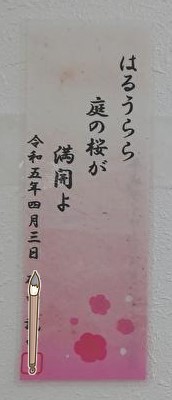 はるうらら
庭の桜が
満開よ
令和五年四月三日